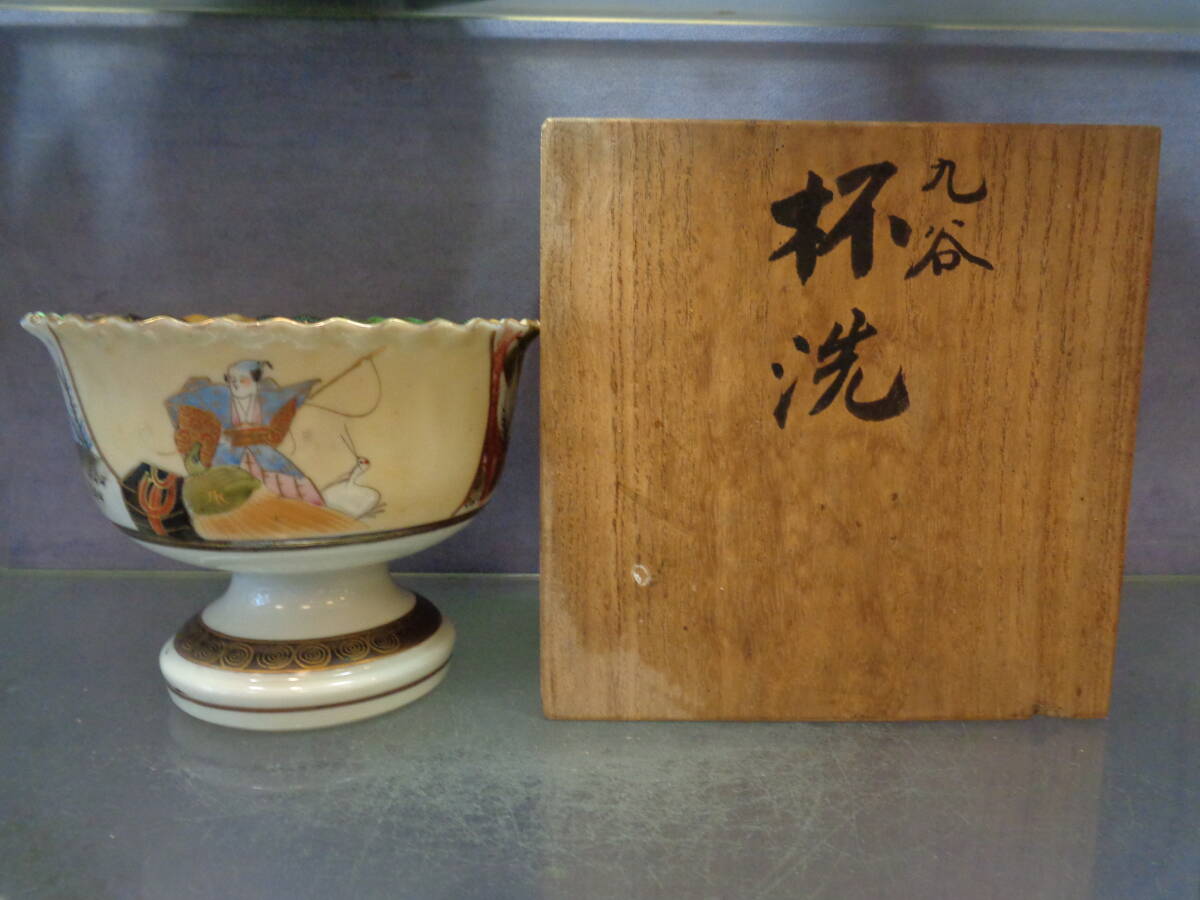 九谷
杯洗